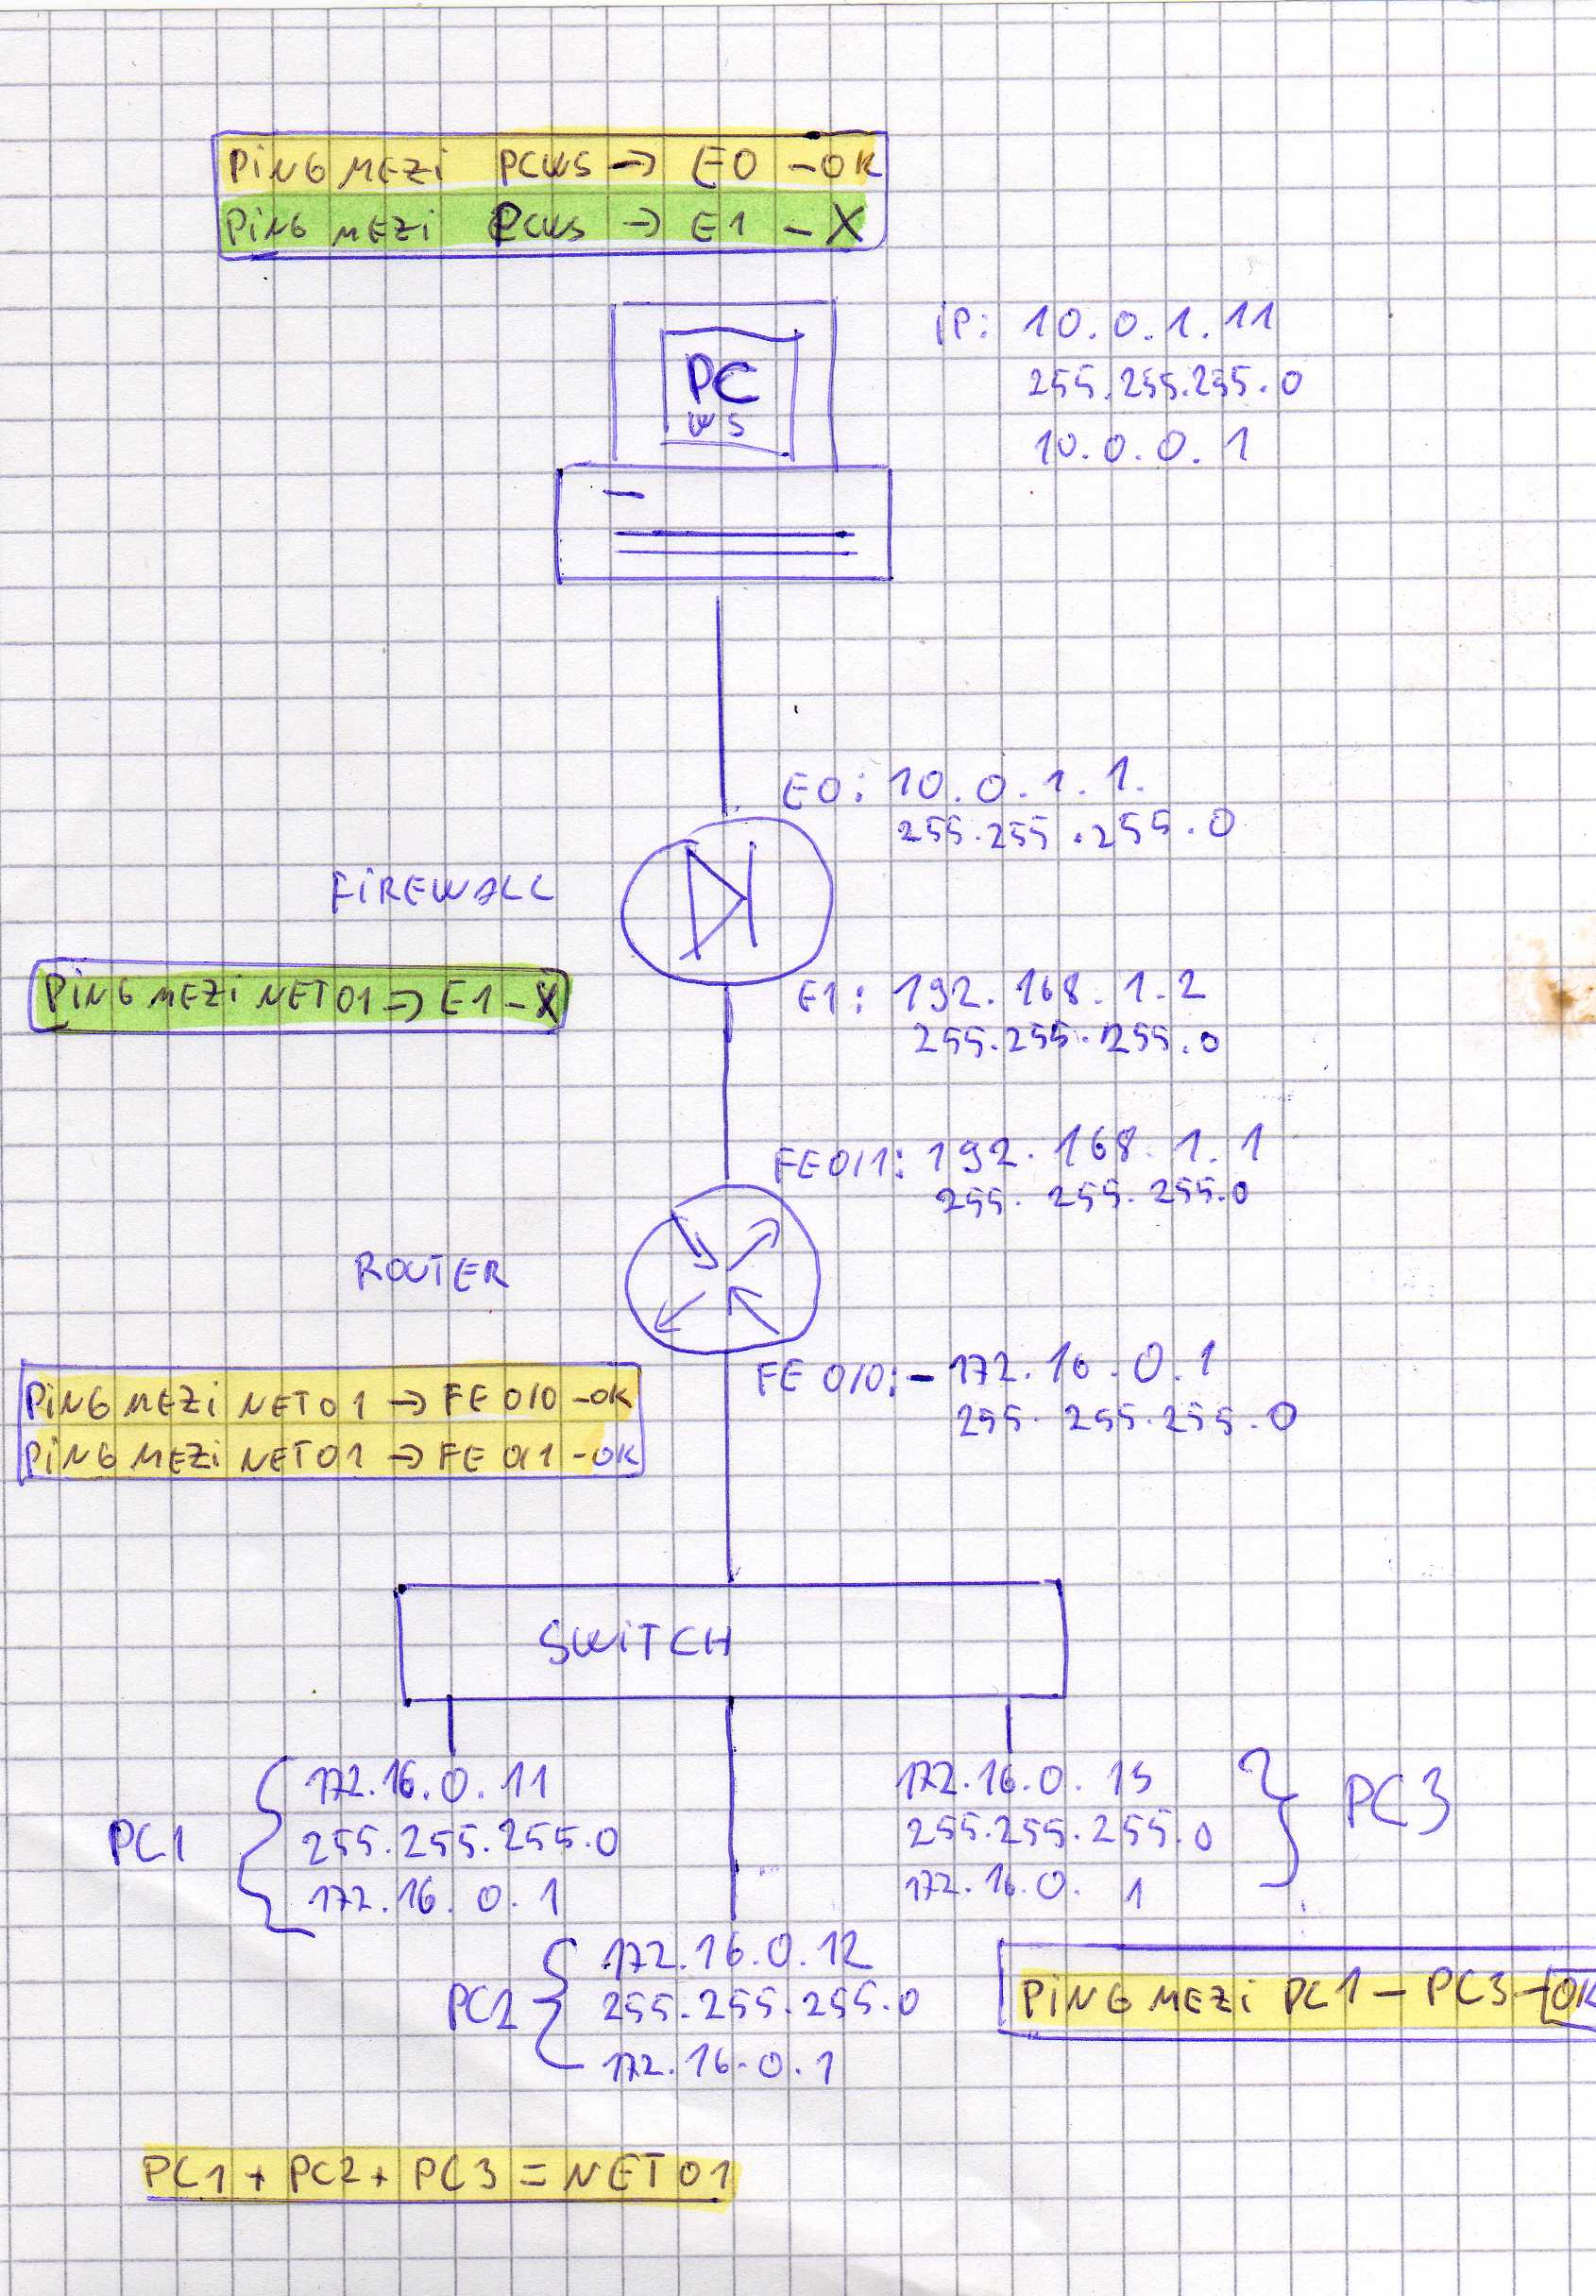 PING MEZI PCWS → E0 - OK
PING MEZI PCWS → E1 - X
PC
WS
IP: 10.0.1.11
255.255.255.0
10.0.0.1
E0: 10.0.1.1.
255.255.255.0
FIREWALL
PING MEZI NET01 → E1 - X
E1: 192.168.1.2
255.255.255.0
FE0/1: 192.168.1.1
255.255.255.0
ROUTER
FE 0/0: - 172.16.0.1
255.255.255.0
PING MEZI NET01 → FE 0/0 - OK
PING MEZI NET01 → FE 0/1 - OK
SWITCH
PC1
172.16.0.11
255.255.255.0
172.16.0.1
172.16.0.13
255.255.255.0
172.16.0.1
PC3
PC2
172.16.0.12
255.255.255.0
172.16.0.1
PING MEZI PC1 - PC3 - OK
PC1 + PC2 + PC3 = NET01